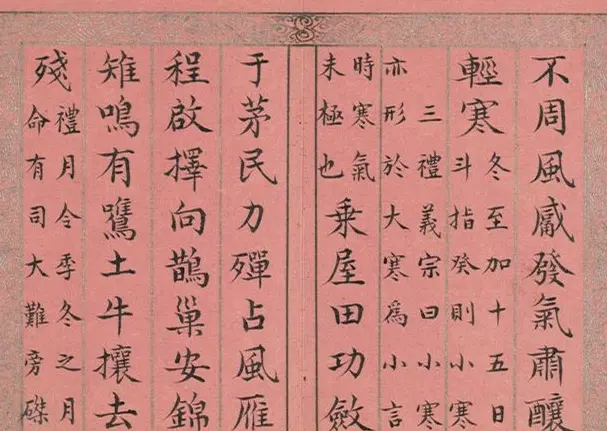 不周風觱發氣肅釀
輕寒
冬至加十五日
斗指癸則小寒
三禮義宗曰小寒
亦形於大寒爲小言
時寒氣
未極也
乗屋田功斂
于茅民力殫占風雁
程啟擇向鵲巢安錦
雉鳴有鷕土牛攘去
殘
禮月令季冬之月
命有司大難旁磔